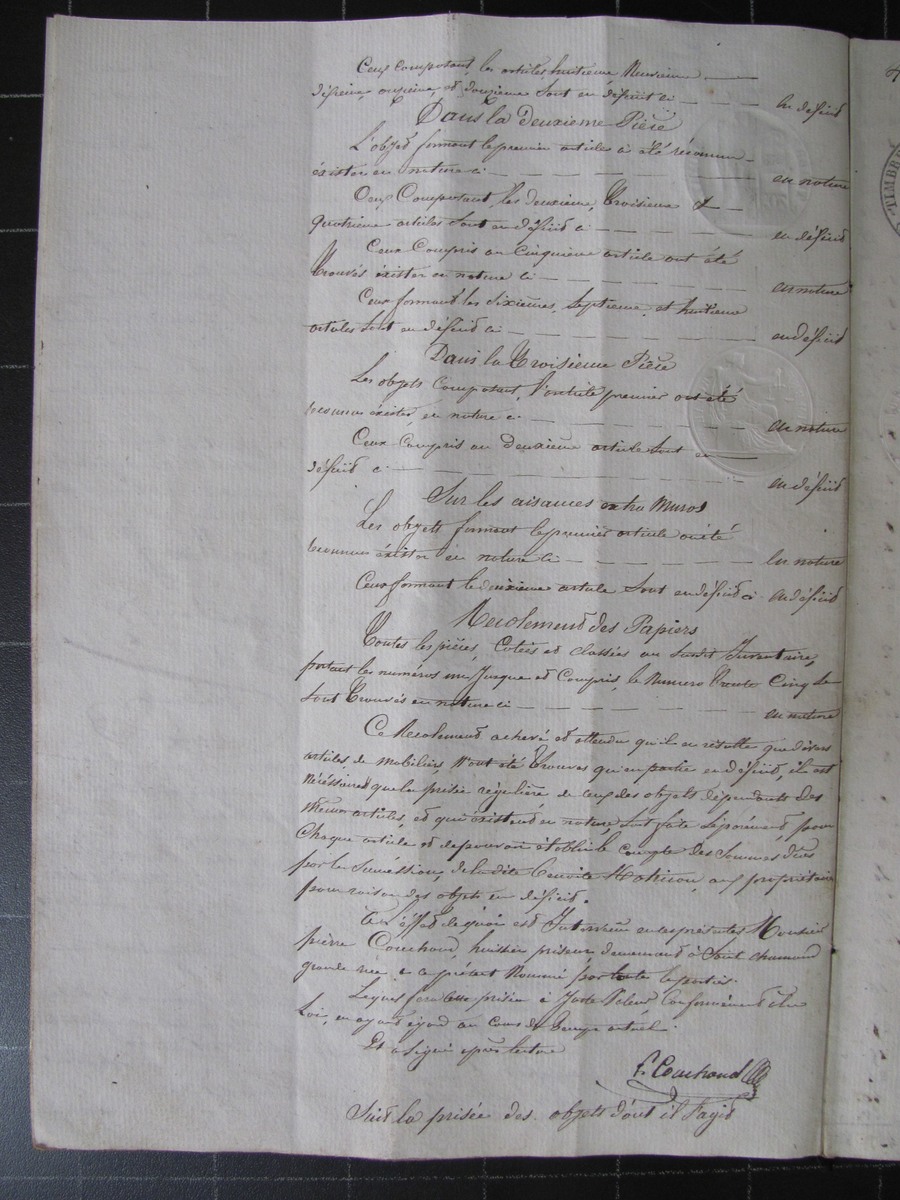 Ceux Composant, les articles huitieme Neuvieme
dixieme, onzieme, et douzieme sont en déficit ci — en déficit
Dans la Deuxieme Piéce
L'objet formant le premier article a été réconnu
éxister en nature ci — en nature
Ceux Composant, les deuxieme, Troisieme &
quatrieme articles sont en déficit ci — en déficit
Ceux Compris au Cinquieme article ont été
Trouvés éxister en nature ci — en nature
Ceux formant les sixieme, septieme et huitieme
articles sont en déficit ci — en déficit
Dans la Troisieme Piéce
Les objets Composant, l'article premier ont été
reconnus éxister, en nature ci — en nature
Ceux Compris au Deuxieme article sont en
déficit ci — en déficit
Sur les aisances extra Muros
Les objets formant le premier article ont été
reconnus éxister en nature ci — en nature
Ceux formant le deuxieme article sont en déficit ci — en déficit
Recolement des Papiers
Toutes les piéces, Cotées et classées au susdit Inventaire,
portant les numéros un Jusque et Compris, le Numero Trente Cinq
sont Trouvés en nature ci — en nature
Ce Recolement achevé et attendu qu'il en résulte que divers
articles de mobiliers, n'ont été Trouvés qu'en partie en déficit, il est
Nécéssaire que la prisée régulière de ceux des objets dépendants des
mêmes articles, et qui éxistent en nature, soit faite séparément, pour
Chaque article et de pouvoir établir le compte des sommes dües
par la succéssion, de la dite au propriétaire
pour raison des objets en déficit.
A l'éffet de quoi est Intervenu en ces présentes Monsieur
pierre Couchoud, huissier priseur demeurant à Saint chamond
grande rue, a ce présent Nommé par toute les parties.
Lequel fera cette prisée à Juste Valeur Conformément à la
Loi, en ayant égard au cours de chaque article.
Et a signé après lecture
P. Couchoud
Suit la prisée des objets dont il s'agit
TIMBRE